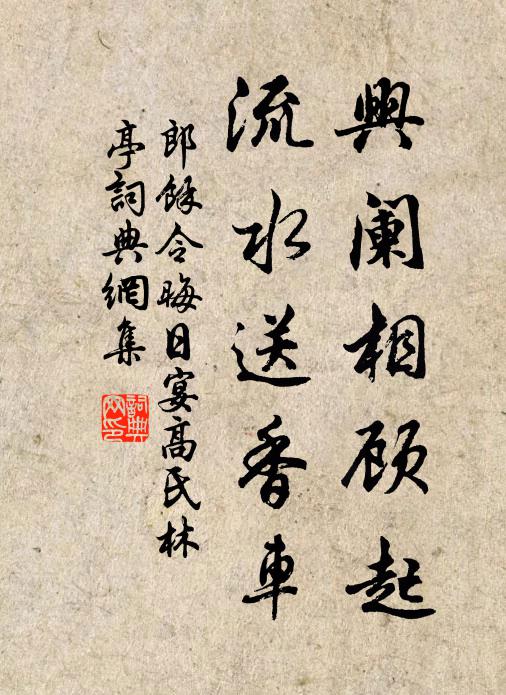 興阑相顾起
流水送香車
郎餘令晦日宴高氏林
亭詞典網集
詞典
网印